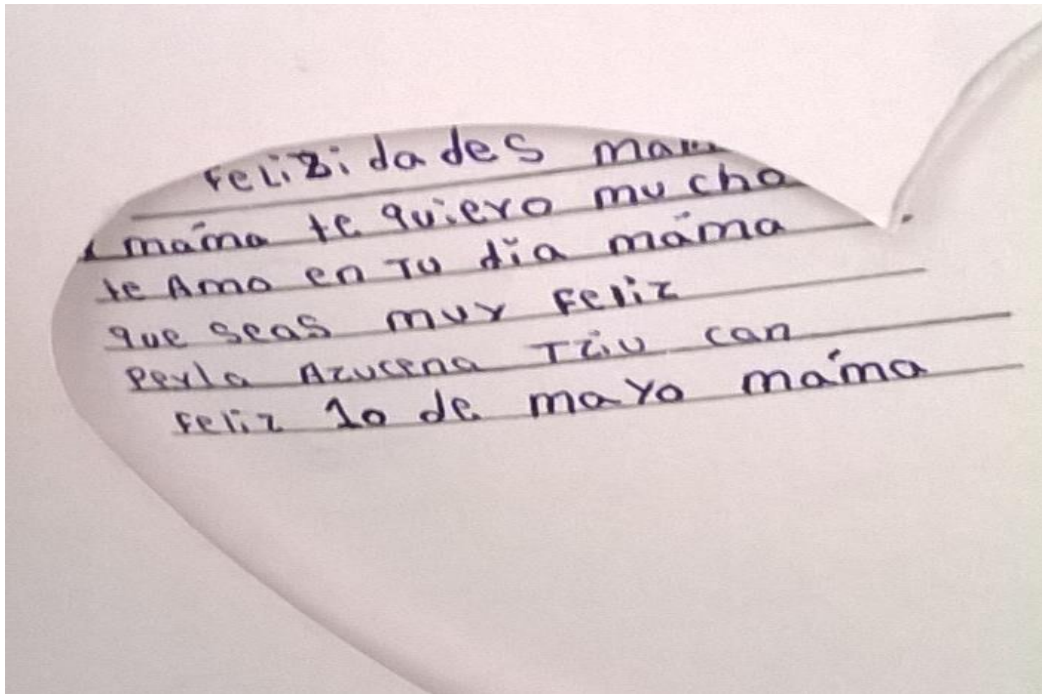 Felizidades mam
máma te quiero mucho
te Amo en TU día máma
que seas muy Feliz
Perla Azucena Tziu can
Feliz 10 de mayo máma